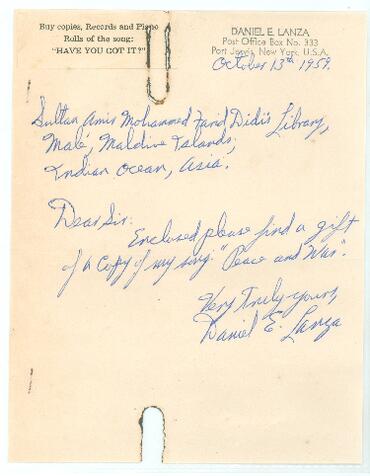 Buy copies, Records and Piano
Rolls of the song:
"HAVE YOU GOT IT?"
DANIEL E. LANZA
Post Office Box No. 333
Port Jervis, New York, U.S.A.
October 13th 1959.
Sultan Amir Mohammed Farid Didi's Library,
Malé, Maldive Islands,
Indian Ocean, Asia.
Dear Sir:
Enclosed please find a gift
of a copy of my song: "Peace and War".
Very Truly yours,
Daniel E. Lanza